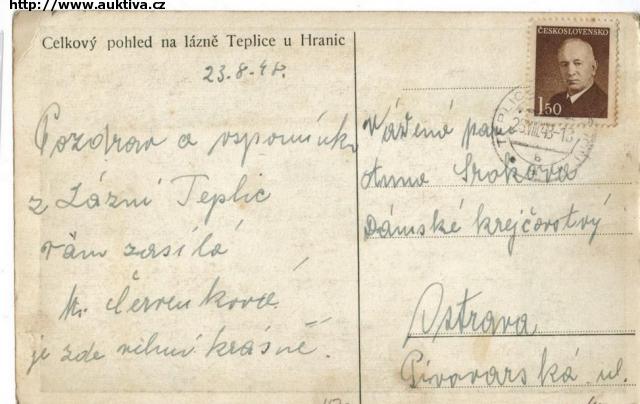 http://www.auktiva.cz
Celkový pohled na lázně Teplice u Hranic
23.8.48.
Pozdrav a vzpomínku
z Lázní Teplic
Vám zasílá
M. Červenková.
je zde velmi krásně.
ČESKOSLOVENSKO
1.50
TEPLICE
25.VIII.48-13
b
Vážená paní
Anna Srokova
Dámské krejčovstvý
Ostrava
Pivovarská ul.